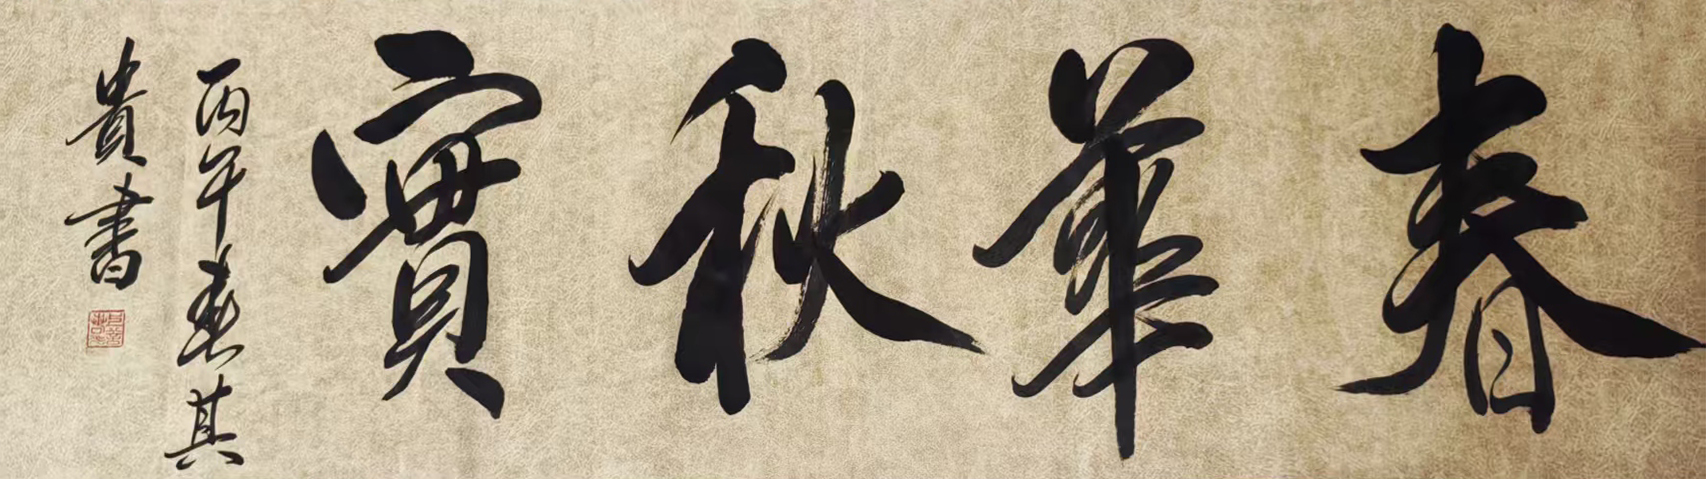 春華秋實
丙午春其
貴書